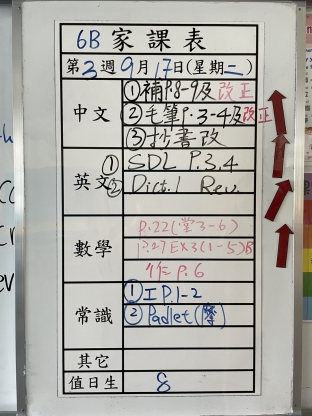 6B 家課表
第3週9月17日(星期二)
中文
①補P.8-9及改正
②毛筆P.3-4及改正
③抄書改
英文
① SDL P.3,4
② Dict.1 Rev.
數學
P.22(堂3-6)
P.27 EX3(1-5)B
作 P.6
常識
①工P.1-2
②Padlet()
其它
值日生
8